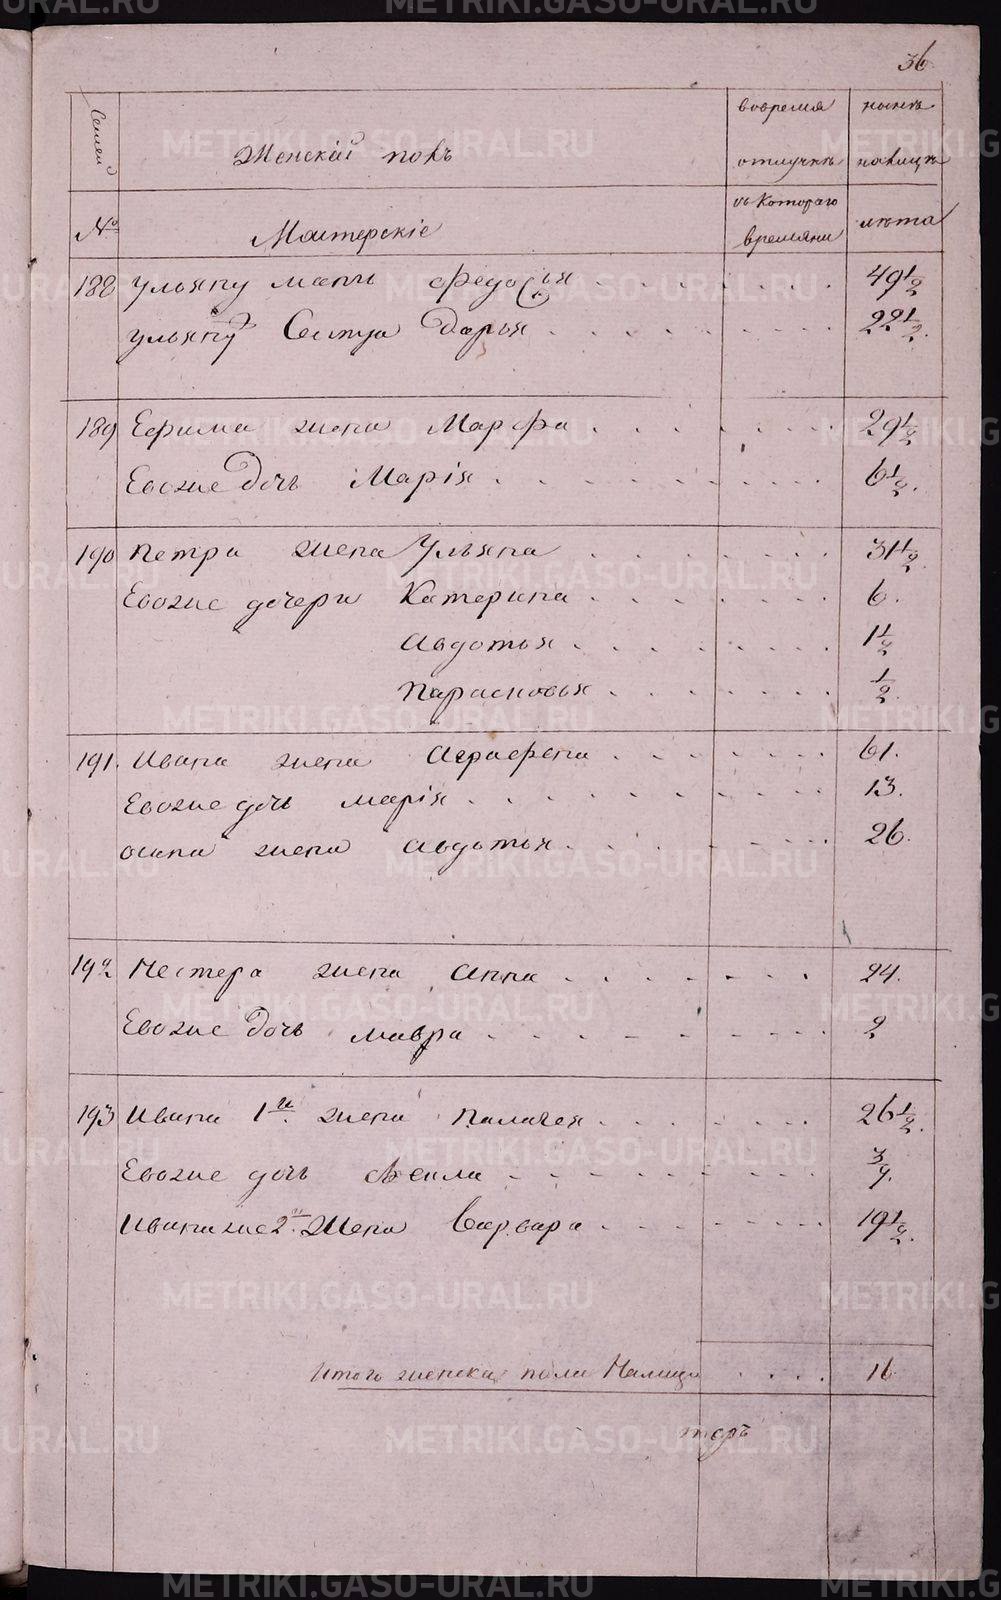 36
Семеи
Женскій полъ
вовремя отлучкѣ
нынѣ налицѣ
№
Мастерскіе
съ Котораго времяни
лѣта
188 ульяну мать Федосья 49 1/2
ульяну Сестра Дарья 22 1/2
189 Ефима жена Марфа 29 1/2
Евоже дочь Марія 6 1/2
190 Петра жена Ульяна 31 1/2
Евоже дочери Катерина 6
Авдотья 1 1/2
Парасковья 1/2
191 Ивана жена Аграфена 61
Евоже дочь марія 13
осипа жена Авдотья 26
192 Нестера жена Анна 24
Евоже дочь мавра 2
193 Ивана 1й жена палагея 26 1/2
Евоже дочь Ѳекла 3/4
Иванаже 2й Жена Варвара 19 1/2
Итого женска пола Налицо 16
METRIKI.GASO-URAL.RU